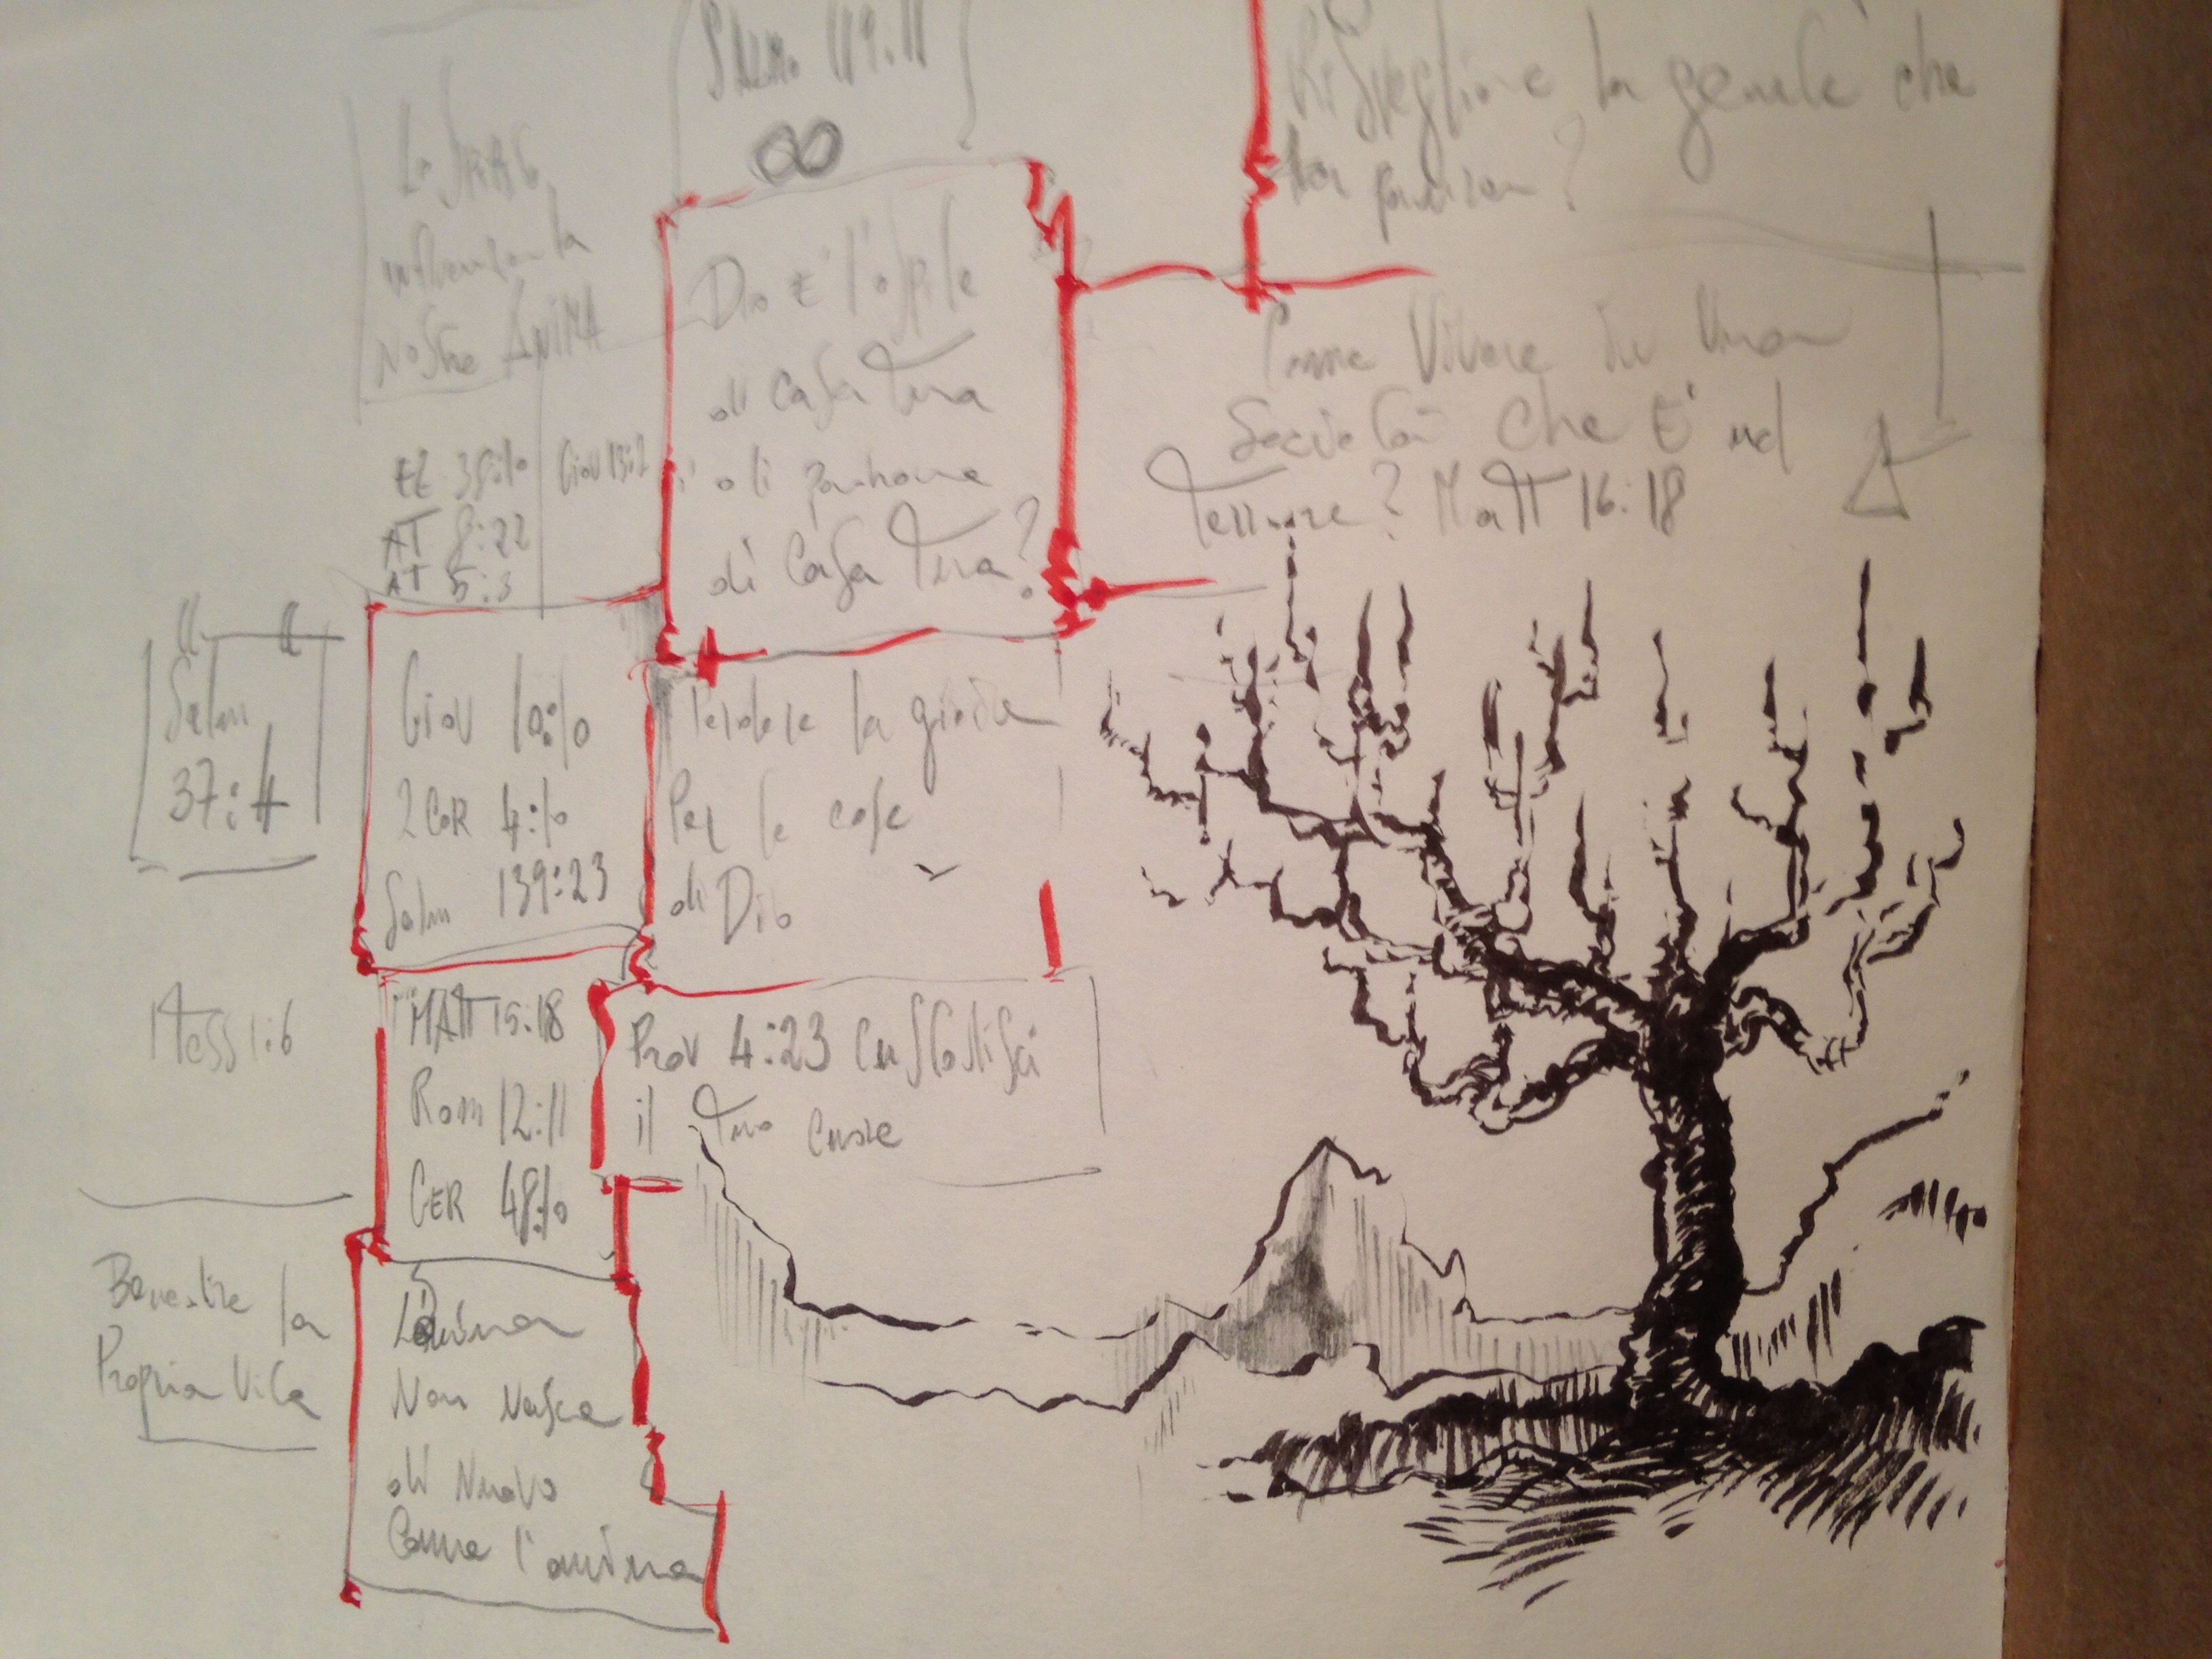 SALMO 119:11
Risvegliare la gente che
ha paura?
Lo Spirito
influenza la
nostra ANIMA
Dio E' l'ospite
di Casa Tua
o il padrone
di Casa Tua?
Come Vivere in Una
Società Che E' nel
Terrore? MATT 16:18
EZ 38:10
AT 8:22
AT 5:3
Giov 13:2
Salm
37:4
Giov 10:10
2 COR 4:10
Salm 139:23
Perdere la gioia
Per le cose
di Dio
1 Tess 1:6
MATT 15:18
Rom 12:11
GER 48:10
Prov 4:23 Custodisci
il Tuo Cuore
Benedire la
Propria Vita
L'anima
Non Nasce
di Nuovo
Come l'anima